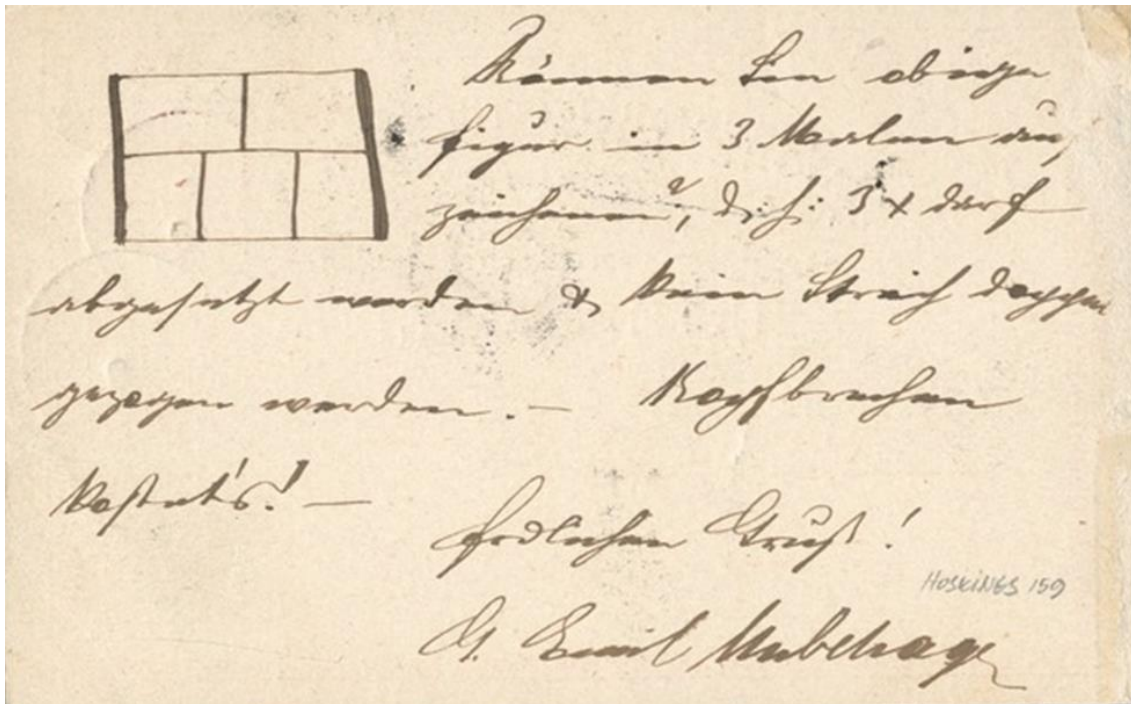 Können Sie obige
Figur in 3 Malen
zeichnen?, d. h: 3 x darf
abgesetzt werden & kein Strich doppelt
gezogen werden. — Kopfbrechen
kostet's! —
frdlichen Gruß!
HOSKINGS 159
G. Emil